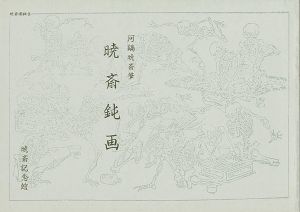 河鍋暁斎筆
暁斎鈍画
暁斎記念館